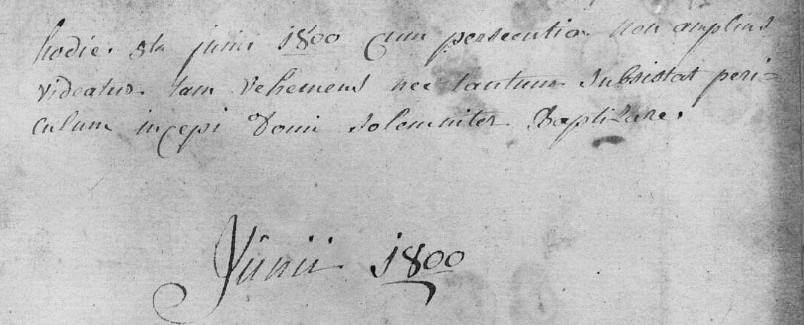 hodie 5ta junii 1800 cum persecutio non amplius
videatur tam vehemens nec tantum subsistat peri=
culum incepi Domi solemniter Baptizare.
Junii 1800